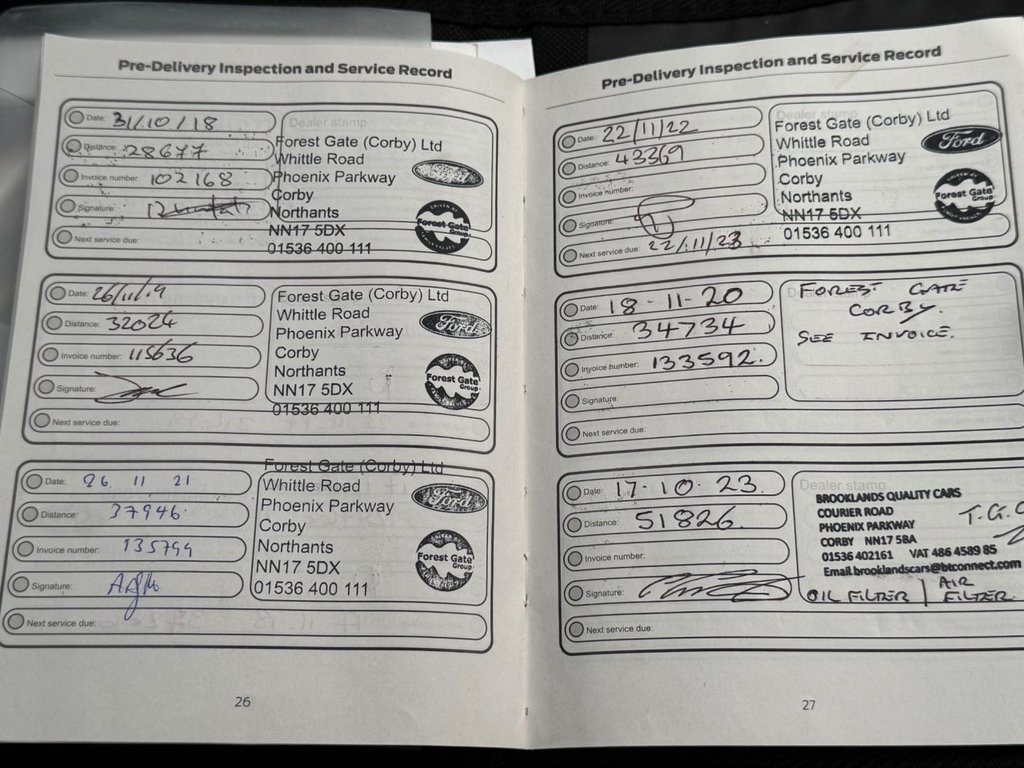 Pre-Delivery Inspection and Service Record
Date: 31/10/18
Distance: 28677
Invoice number: 102168
Signature:
Next service due:
Dealer stamp
Forest Gate (Corby) Ltd
Whittle Road
Phoenix Parkway
Corby
Northants
NN17 5DX
01536 400 111
Forest Gate
Group
Date: 26/11/19
Distance: 32024
Invoice number: 115636
Signature:
Next service due:
Forest Gate (Corby) Ltd
Whittle Road
Phoenix Parkway
Corby
Northants
NN17 5DX
01536 400 111
Ford
Forest Gate
Group
Date: 26 11 21
Distance: 37946
Invoice number: 135799
Signature:
Next service due:
Forest Gate (Corby) Ltd
Whittle Road
Phoenix Parkway
Corby
Northants
NN17 5DX
01536 400 111
Ford
Forest Gate
Group
26
Pre-Delivery Inspection and Service Record
Date: 22/11/22
Distance: 43369
Invoice number:
Signature:
Next service due: 22/11/23
Dealer stamp
Forest Gate (Corby) Ltd
Whittle Road
Phoenix Parkway
Corby
Northants
NN17 5DX
01536 400 111
Ford
Forest Gate
Group
Date: 18-11-20
Distance: 34734
Invoice number: 133592.
Signature:
Next service due:
FOREST GATE
CORBY.
SEE INVOICE.
Date: 17-10-23.
Distance: 51826.
Invoice number:
Signature:
Next service due:
Dealer stamp
BROOKLANDS QUALITY CARS
COURIER ROAD
PHOENIX PARKWAY
CORBY NN17 5BA
01536 402161 VAT 486 4589 85
Email.brooklandscars@btconnect.com
OIL FILTER | AIR FILTER.
27